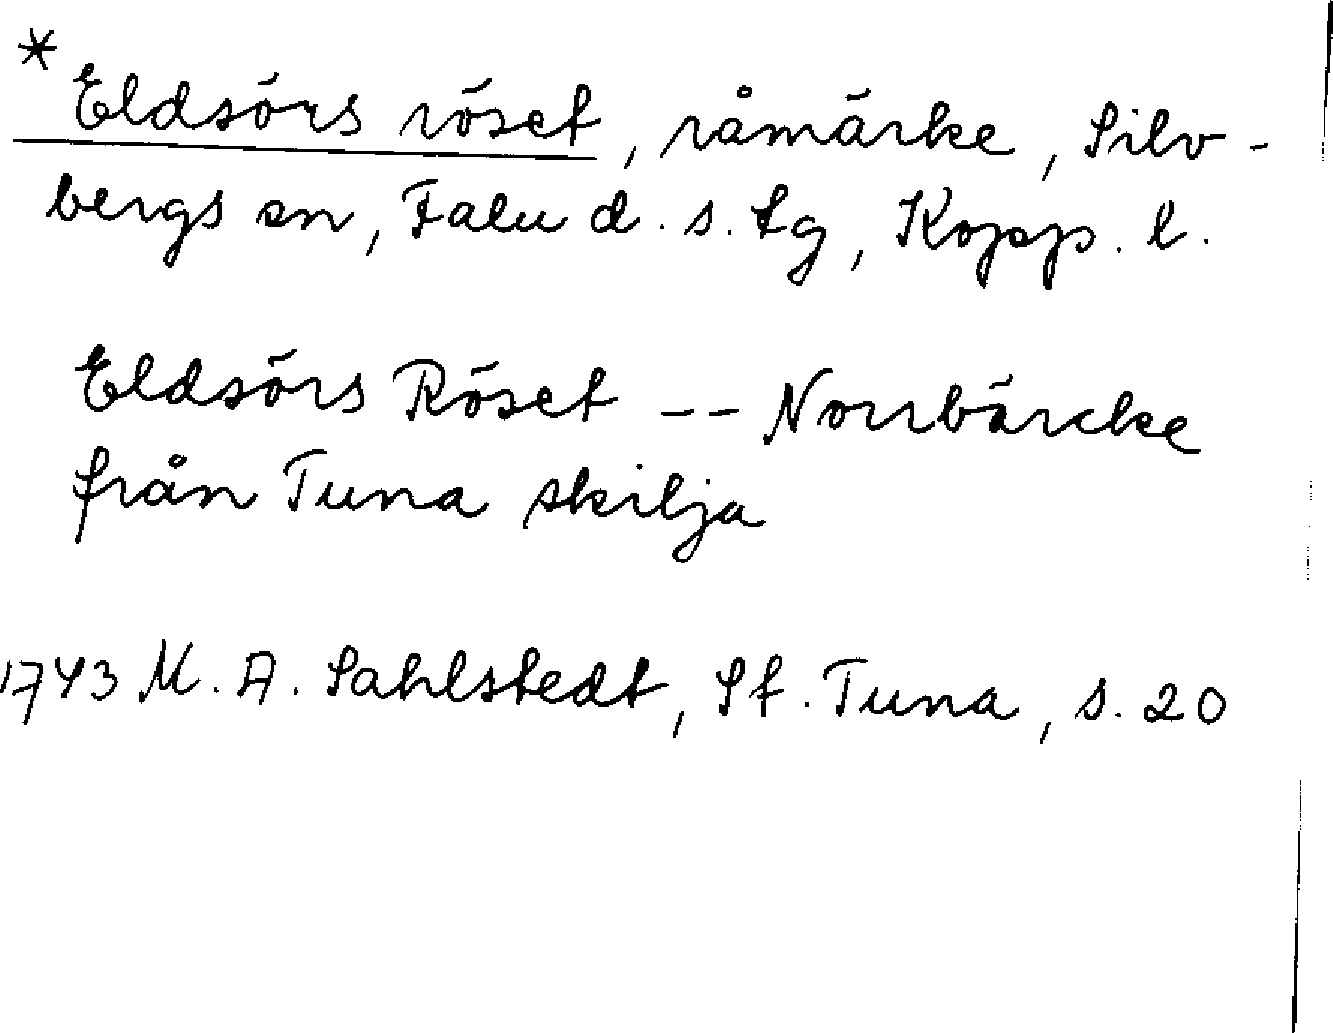 * Eldsörs röset, råmärke, Silv-
bergs sn, Falu d. s. tg, Kopp. l.
Eldsörs Röset -- Norrbärcke
från Tuna skilja
1743 M. A. Sahlstedt, St. Tuna, s. 20